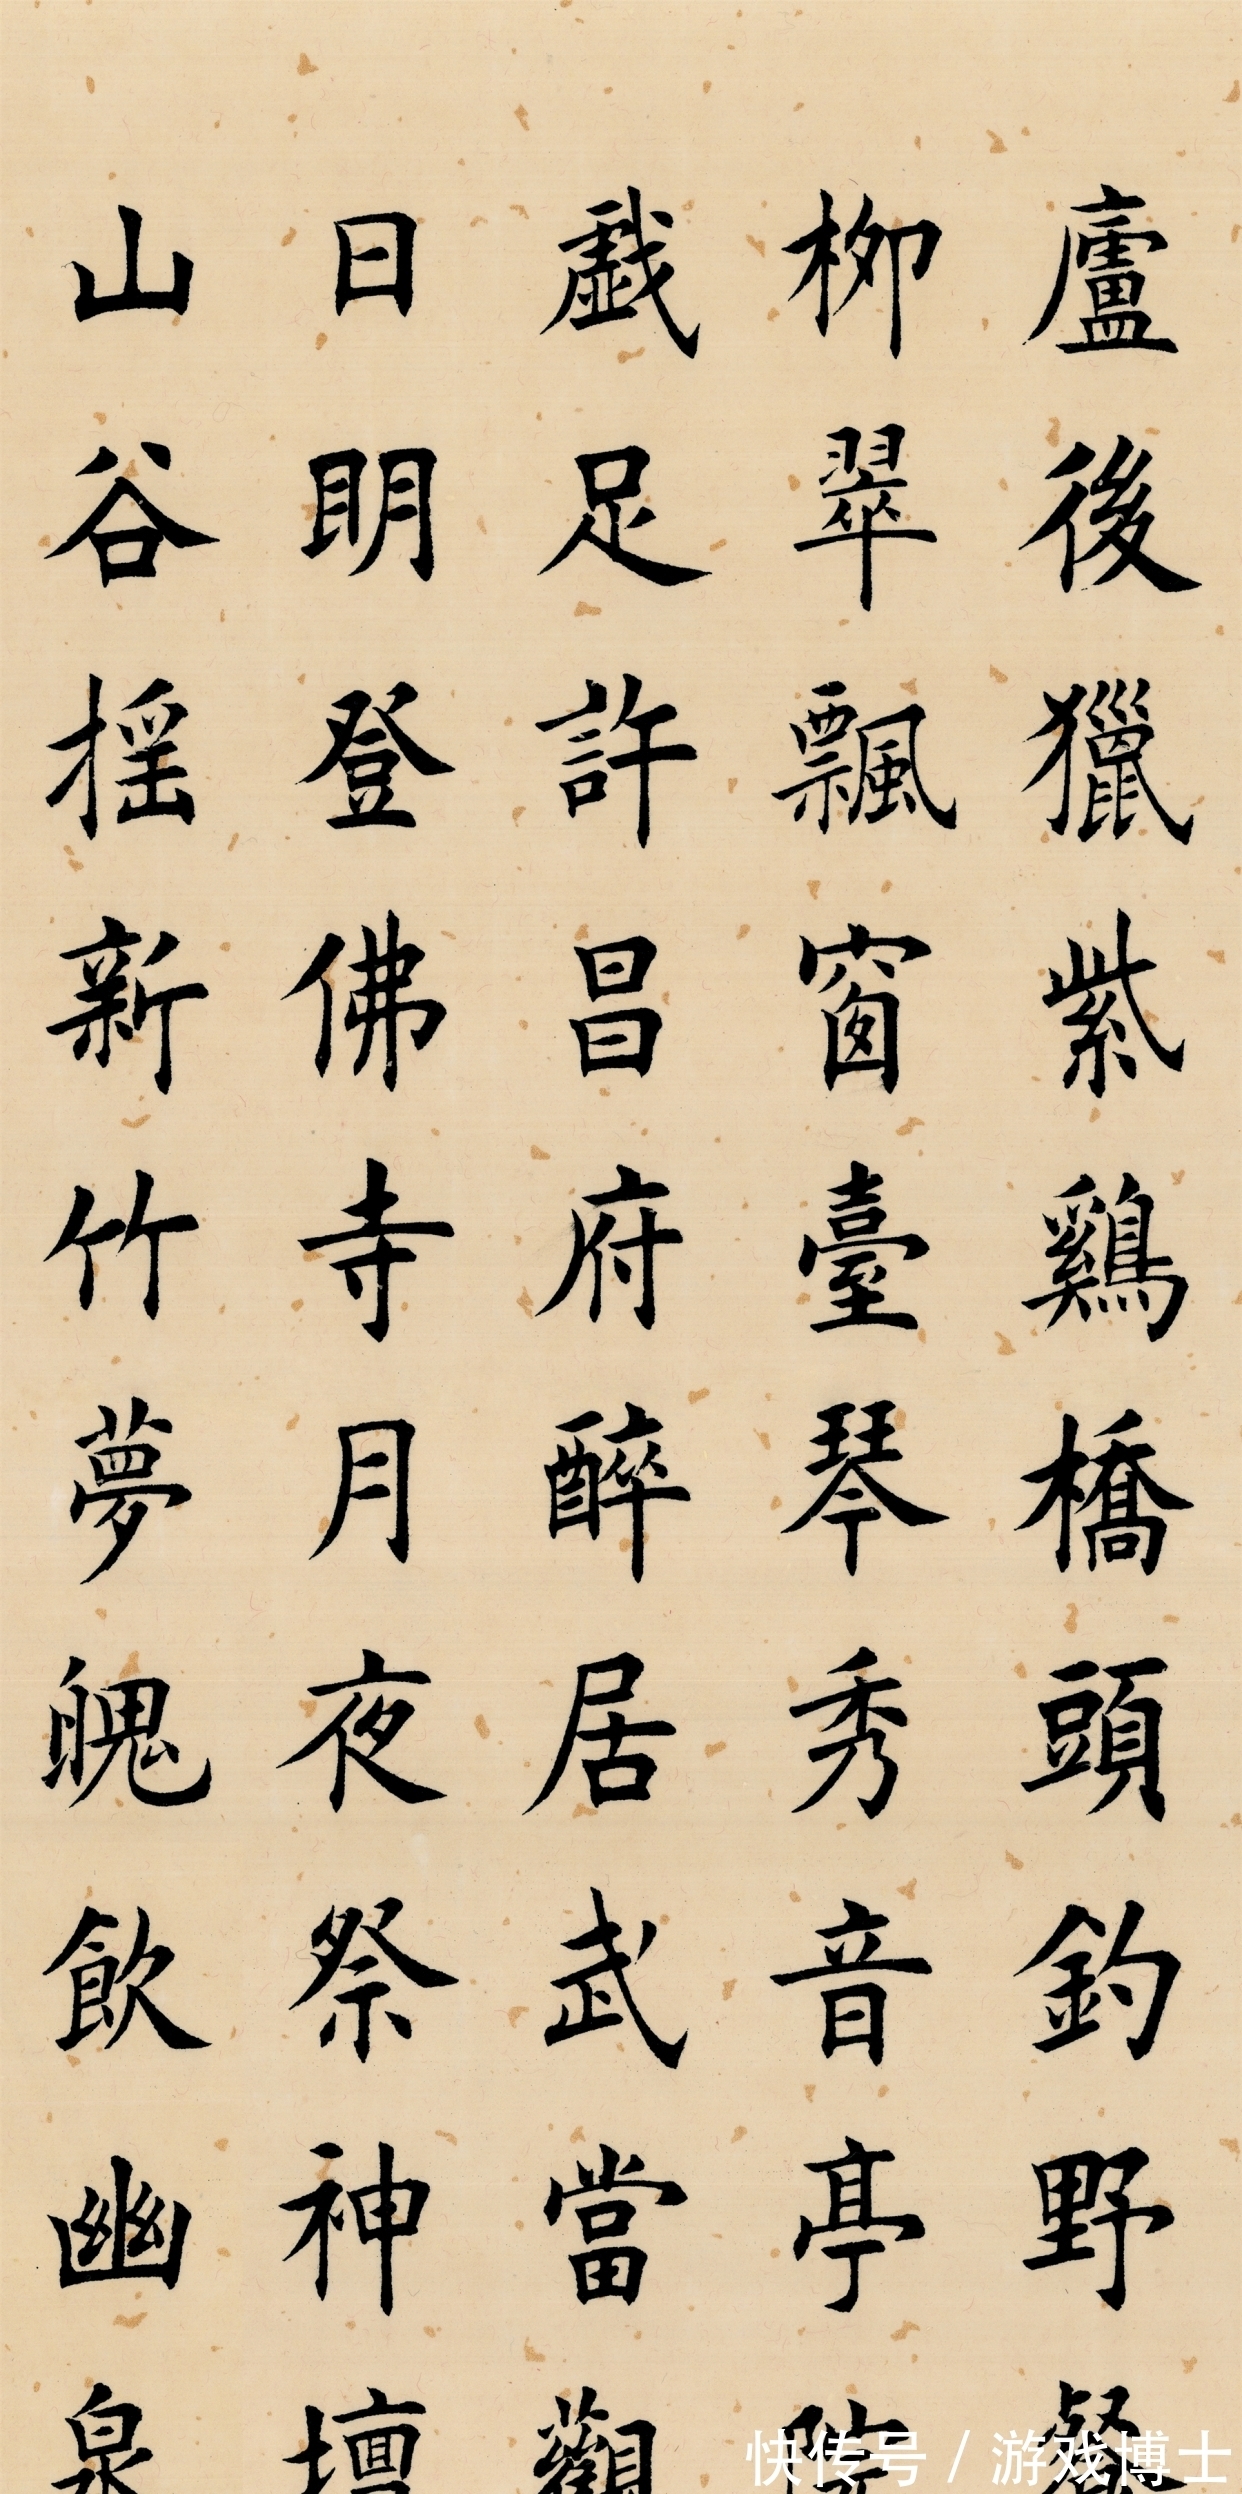 廬後獵紫鷄橋頭釣野餐
柳翠飄窗臺琴秀音亭
戯足許昌府醉居武當觀
日明登佛寺月夜祭神壇
山谷摇新竹夢魄飲幽泉
快传号/游戏博士